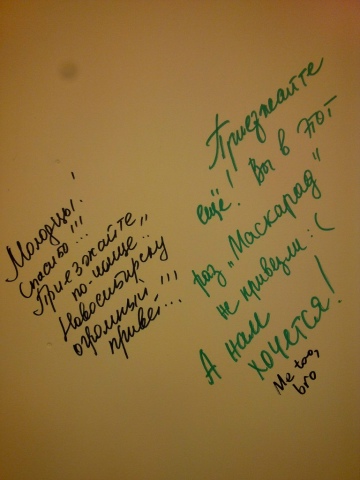 Молодцы!
Спасибо!!!
Приезжайте,,
по-чаще...
Новосибирску
огромный!!!
привет...
Приезжайте
ещё! Вы в этот
раз „Маскарад"
не привезли :(
А нам
хочется!
Me too,
bro